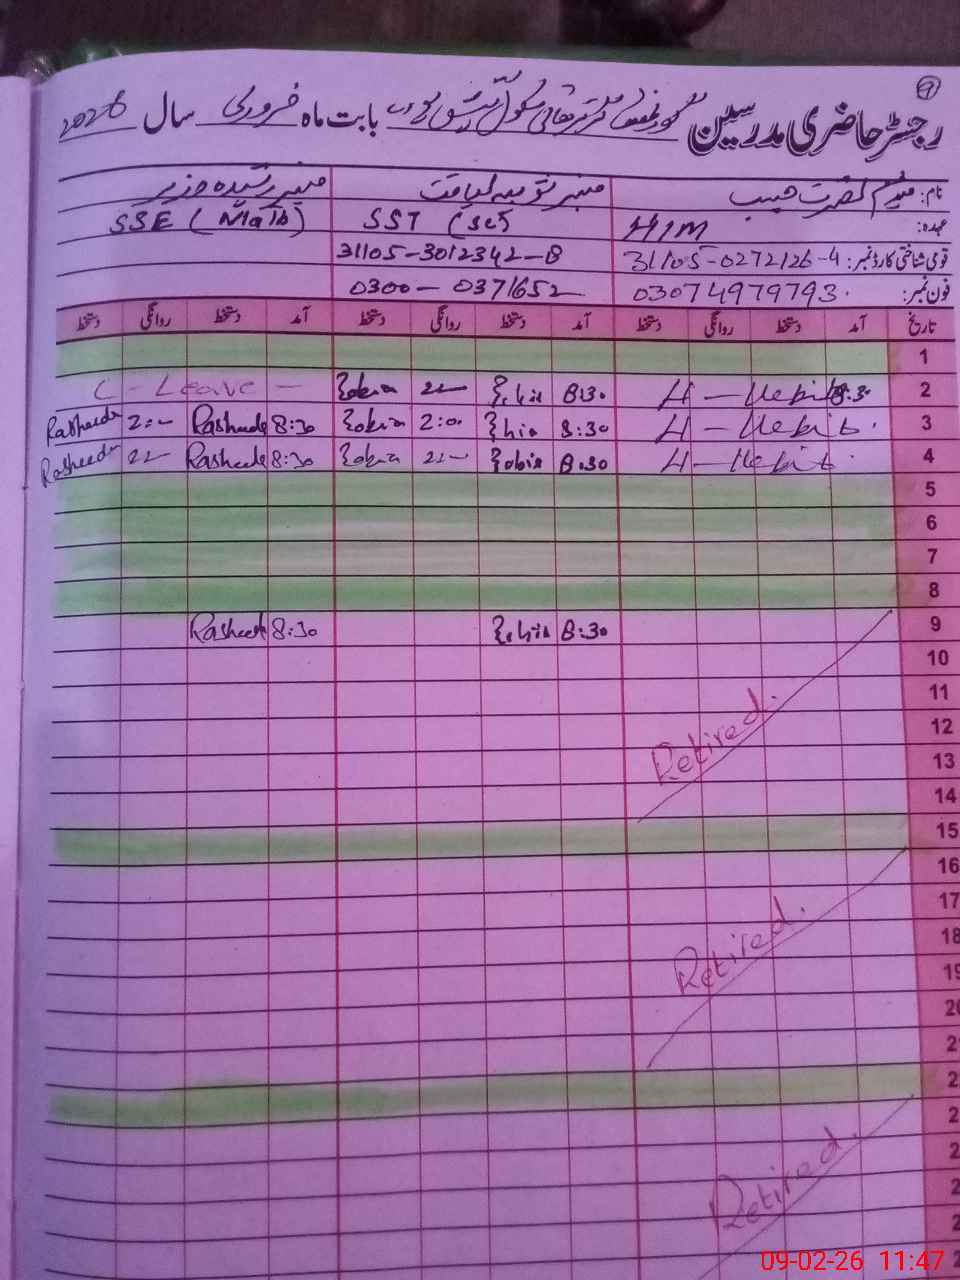 رجسٹر حاضری مدرسین گورنمنٹ گرلز ہائی سکول بابت ماہ فروری سال 2026
نام: میڈم نصرت حبیب مسز ثوبیہ لیاقت مسز رشیدہ عزیز
عہدہ: H/M SST (Sc) SSE (Math)
قومی شناختی کارڈ نمبر: 31105-0272126-4 31105-3012342-8
فون نمبر: 03074979793 0300-0371652
تاریخ آمد دستخط روانگی دستخط آمد دستخط روانگی دستخط آمد دستخط روانگی دستخط
1
2 8:30 H-Hebib 8:30 Zobia Zobia C-Leave-
3 H-Hebib. 8:30 Zobia 2:00 Zobia 8:30 Rasheeda 2:00 Rasheeda
4 H-Hebib. 8:30 Zobia Zobia 8:30 Rasheeda Rasheeda
5
6
7
8
9 8:30 Zobia 8:30 Rasheeda
10
11
12
Retired.
13
14
15
16
17
18
Retired.
19
20
2
2
2
2
Retired.
2
2
2
09-02-26 11:47